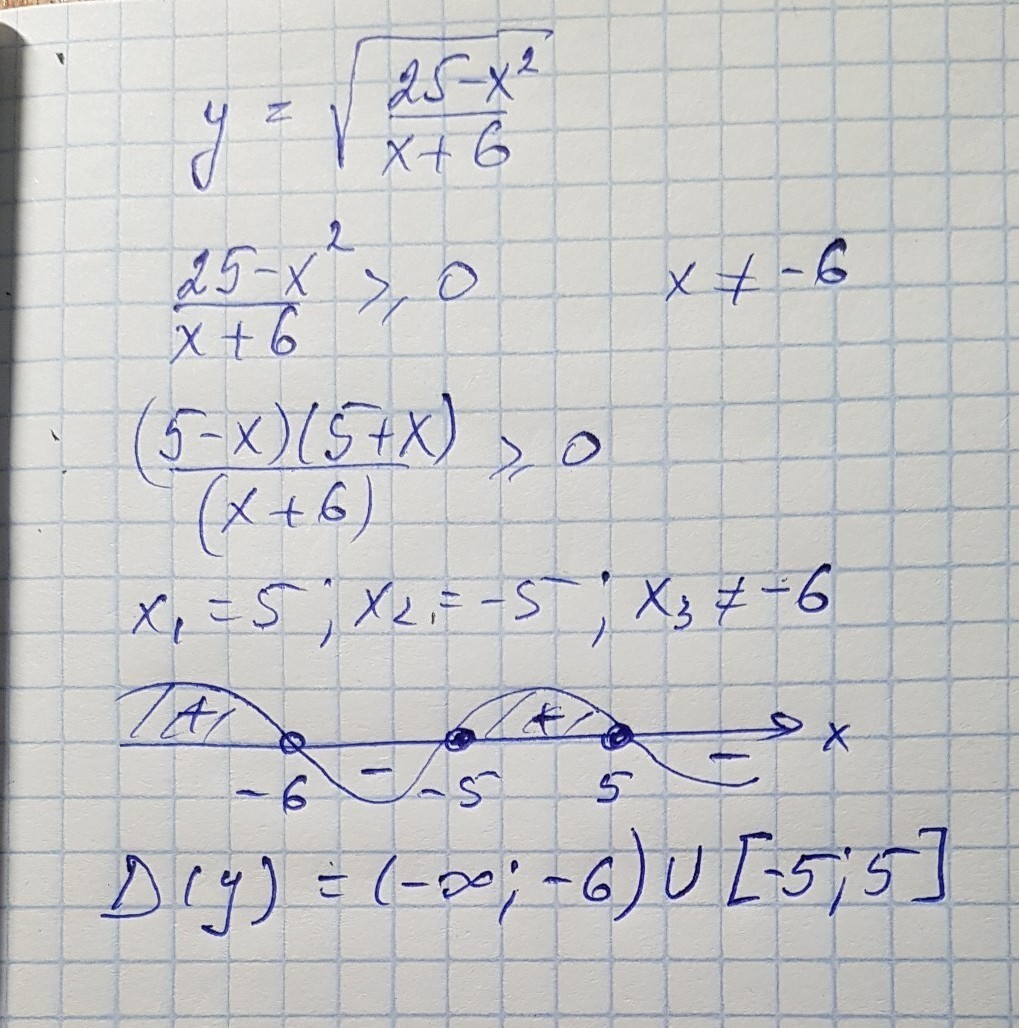 y = √((25-x²)/(x+6))
(25-x²)/(x+6) ⩾ 0 x ≠ -6
((5-x)(5+x))/((x+6)) ⩾ 0
x₁ = 5; x₂ = -5; x₃ ≠ -6
+ - + - x
-6 -5 5
D(y) = (-∞; -6) ∪ [-5; 5]